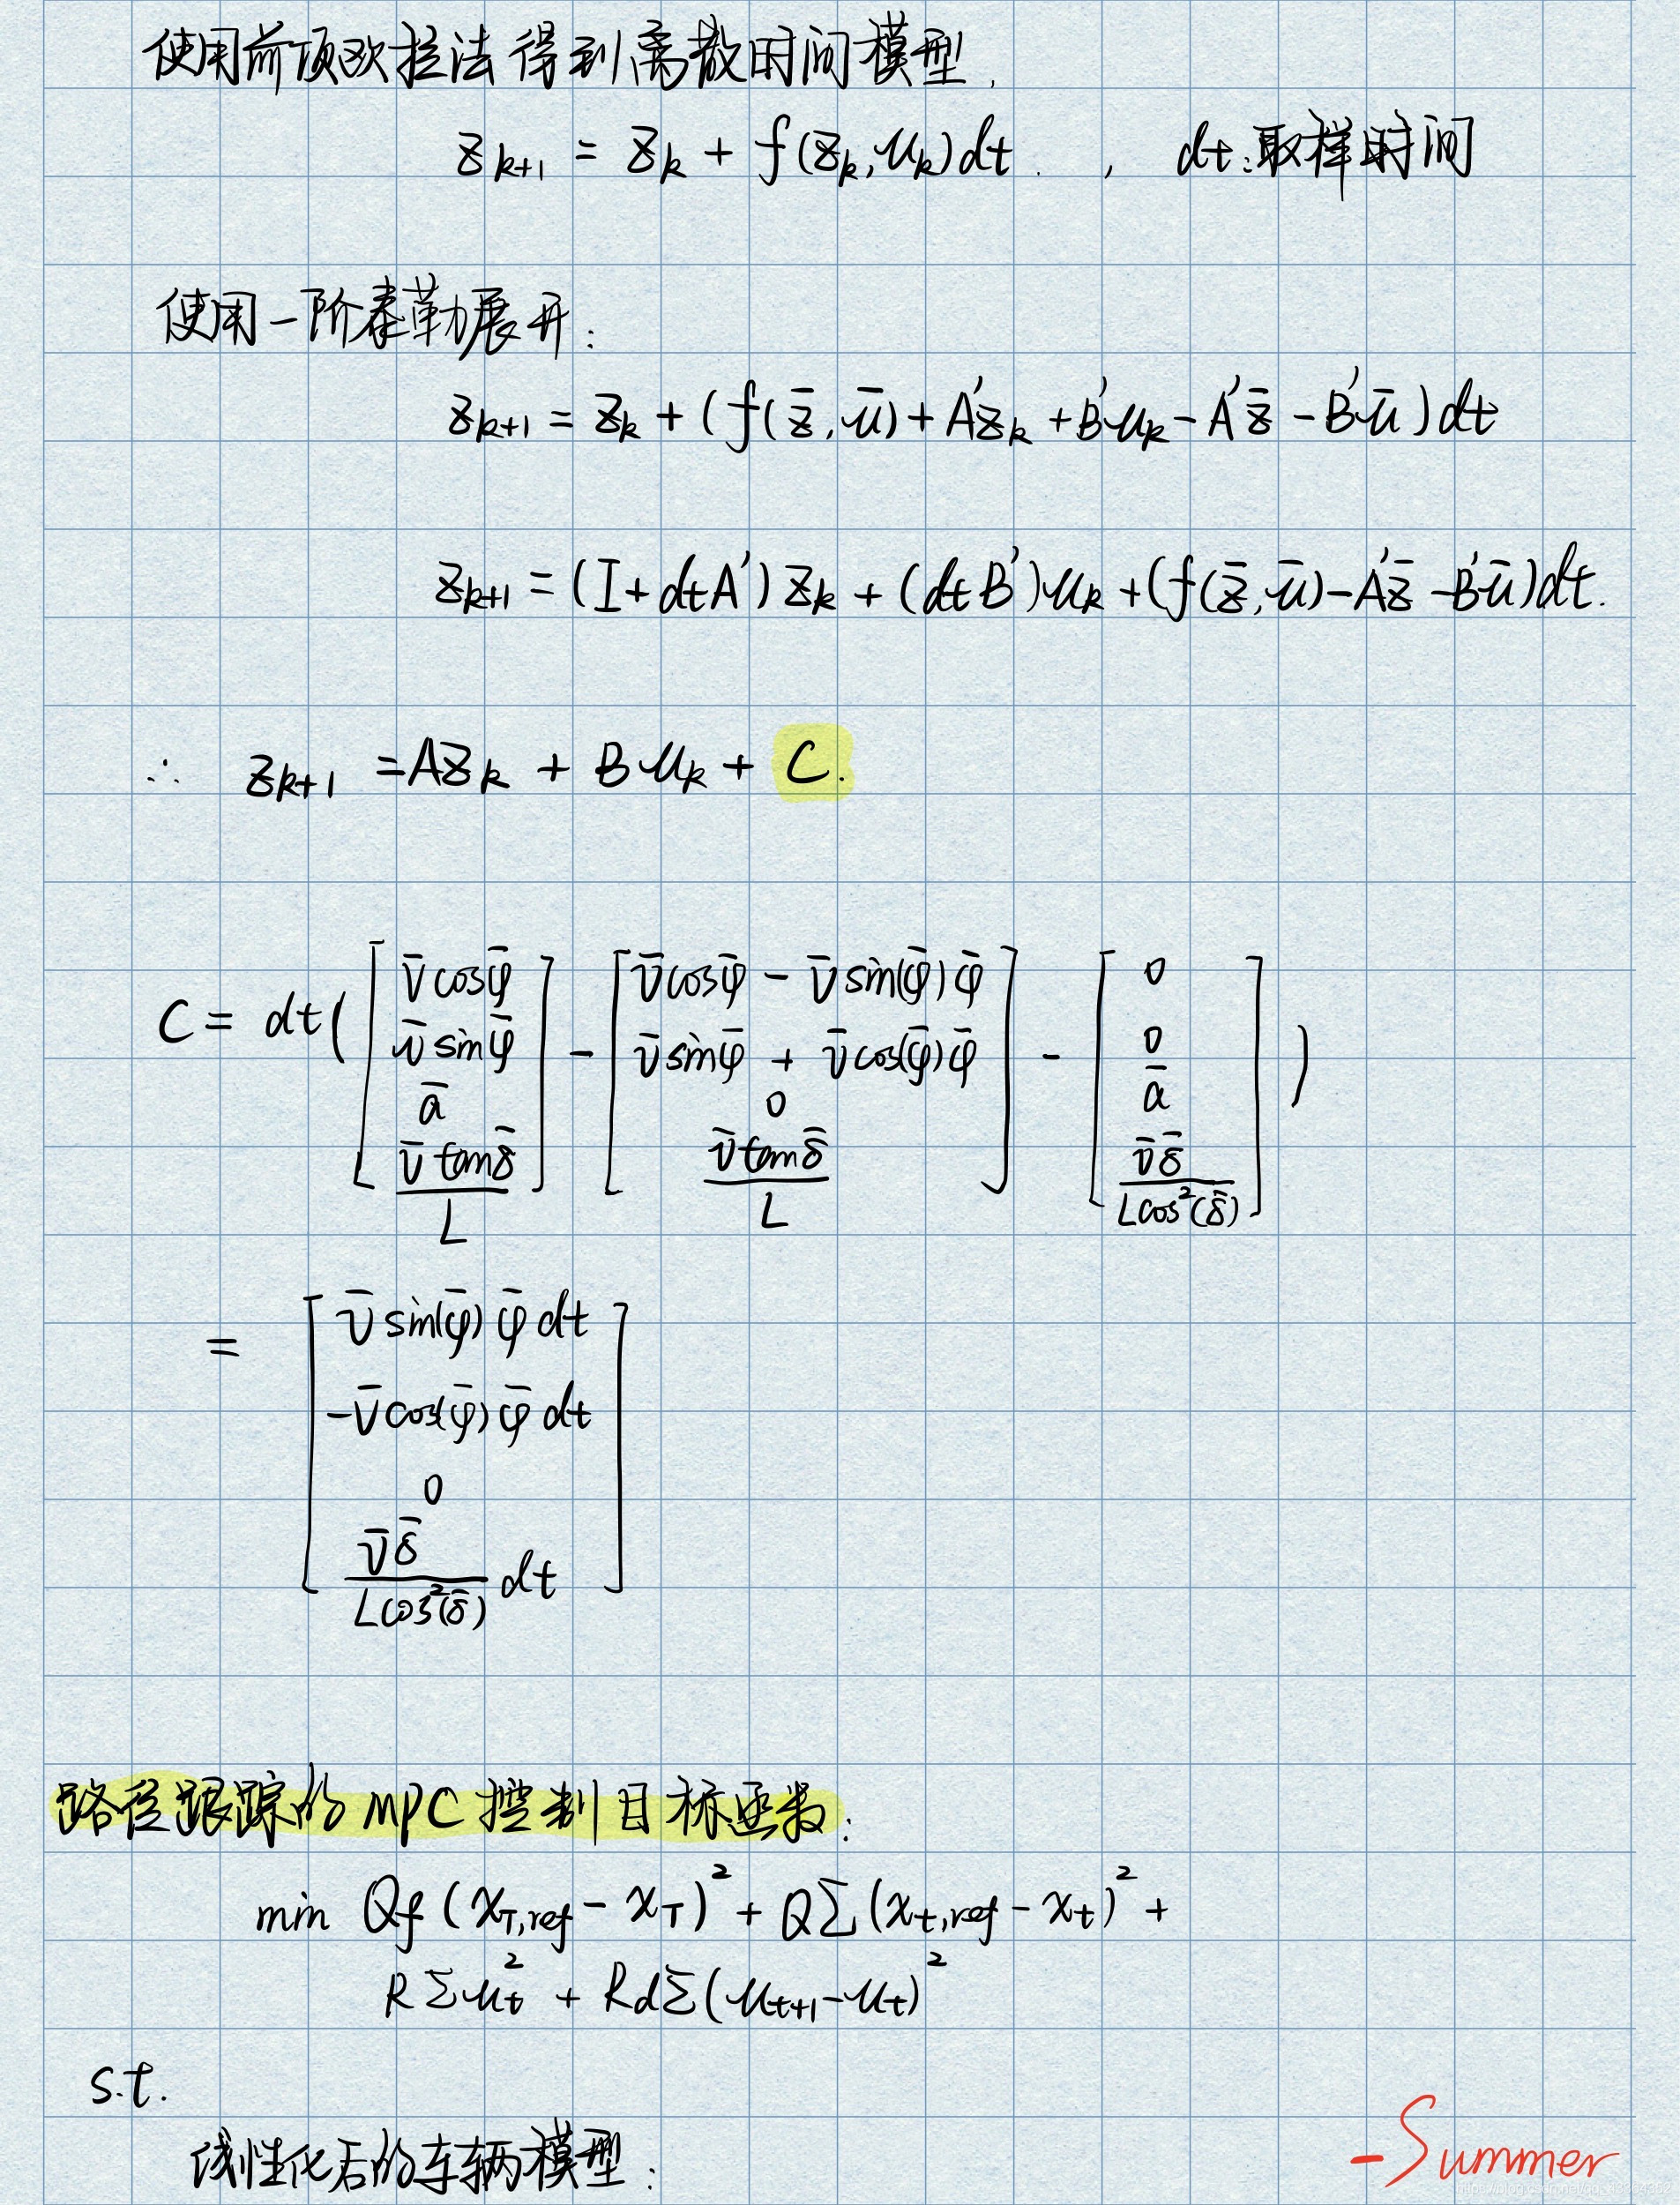 使用前项欧拉法得到离散时间模型.
z_{k+1} = z_k + f(z_k, u_k)dt. , dt:取样时间
使用一阶泰勒展开:
z_{k+1} = z_k + (f(z̄, ū) + A'z_k + B'u_k - A'z̄ - B'ū)dt
z_{k+1} = (I + dtA')z_k + (dtB')u_k + (f(z̄, ū) - A'z̄ - B'ū)dt.
∴ z_{k+1} = Az_k + Bu_k + C.
C = dt([v̄cosφ̄; v̄sinφ̄; ā; v̄tanδ̄/L] - [v̄cosφ̄ - v̄sin(φ̄)φ̄; v̄sinφ̄ + v̄cos(φ̄)φ̄; 0; v̄tanδ̄/L] - [0; 0; ā; v̄δ̄/(Lcos²(δ̄))])
= [v̄sin(φ̄)φ̄dt; -v̄cos(φ̄)φ̄dt; 0; v̄δ̄/(Lcos²(δ̄)) dt]
路径跟踪的MPC控制目标函数:
min Qf(x_{T,ref} - x_T)² + QΣ(x_{t,ref} - x_t)² +
RΣu_t² + RdΣ(u_{t+1} - u_t)²
s.t.
线性化后的车辆模型:
-Summer